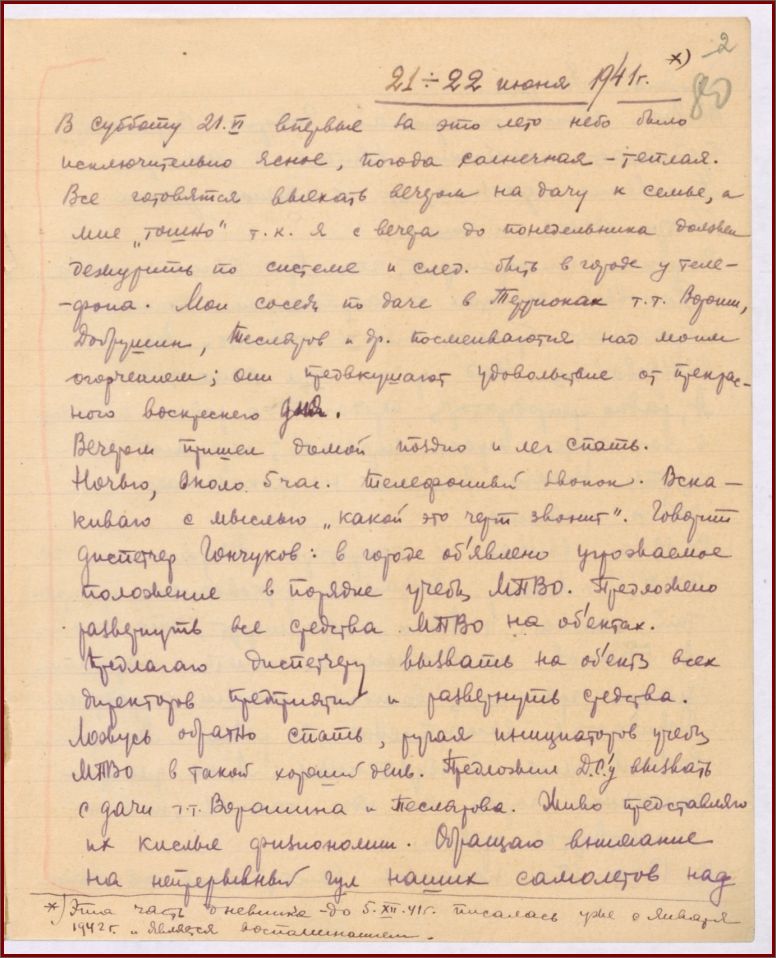 2
80
21÷22 июня 1941г. *)
В субботу 21.VI впервые за это лето небо было
исключительно ясное, погода солнечная – теплая.
Все готовятся выехать вечером на дачу к семье, а
мне „тошно" т.к. я с вечера до понедельника должен
дежурить по системе и след. быть в городе у теле-
-фона. Мои соседи по даче в Териоках т.т. Ворошин,
Добрушин, Тесляров и др. посмеиваются над моим
огорчением; они предвкушают удовольствие от прекрас-
ного воскресного дня.
Вечером пришел домой поздно и лег спать.
Ночью, около 5 час. телефонный звонок. Вска-
киваю с мыслью „какой это черт звонит". Говорит
диспетчер Гончуков: в городе об'явлено угрожаемое
положение в порядке учебы МПВО. Предложено
развернуть все средства МПВО на об'ектах.
Предлагаю диспетчеру вызвать на об'екты всех
директоров предприятий и развернуть средства.
Ложусь обратно спать, ругая инициаторов учебы
МПВО в такой хороший день. Предложил Д.С.'у вызвать
с дачи т.т. Ворошина и Теслярова. Живо представляю
их кислые физиономии. Обращаю внимание
на непрерывный гул наших самолетов над
*) Эта часть дневника до 5.XII.41г. писалась уже с января
1942г. и является воспоминанием.